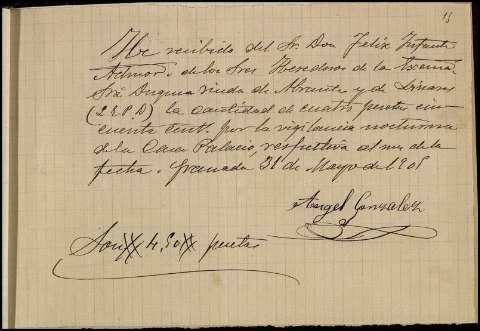 11
He recibido del Sr. Don Felix Infante
Admor. de los Sres Herederos de la Excma
Sra Duquesa viuda de Abrante y de Linares
(Q.E.P.D) la cantidad de cuatro pesetas cin
cuenta cent. por la vigilancia nocturna
de la Casa Palacio, respectiva al mes de la
fecha. Granada 31 de Mayo de 1901
Angel Gonzalez
Son 4,50 pesetas